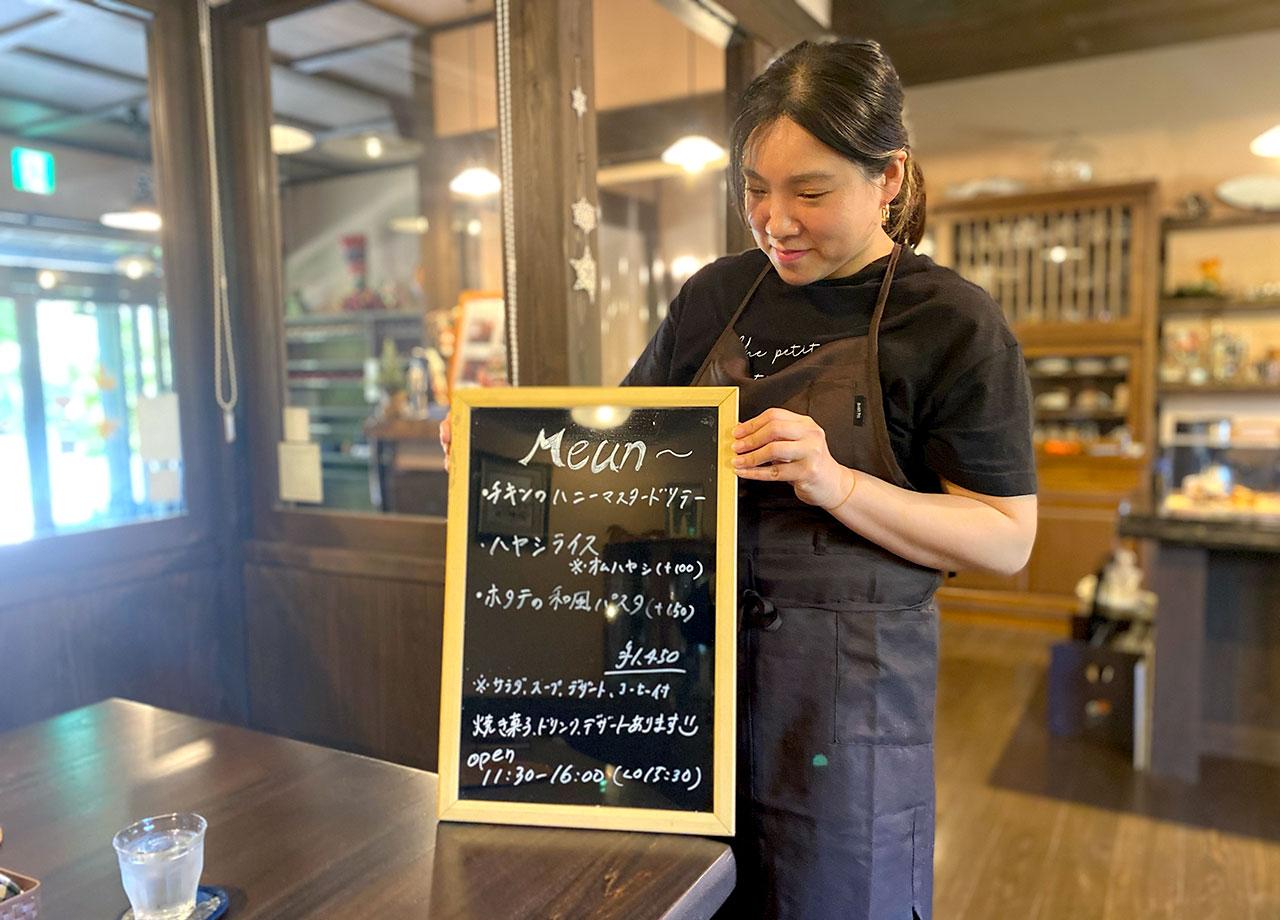 The petit
Meun～
・チキンのハニーマスタードソテー
・ハヤシライス
※・オムハヤシ(+100)
・ホタテの和風パスタ(+150)
¥1,450
※・サラダ、スープ、デザート、コーヒー付
焼き菓子、ドリンク、デザートあります
open
11:30-16:00 (LO15:30)